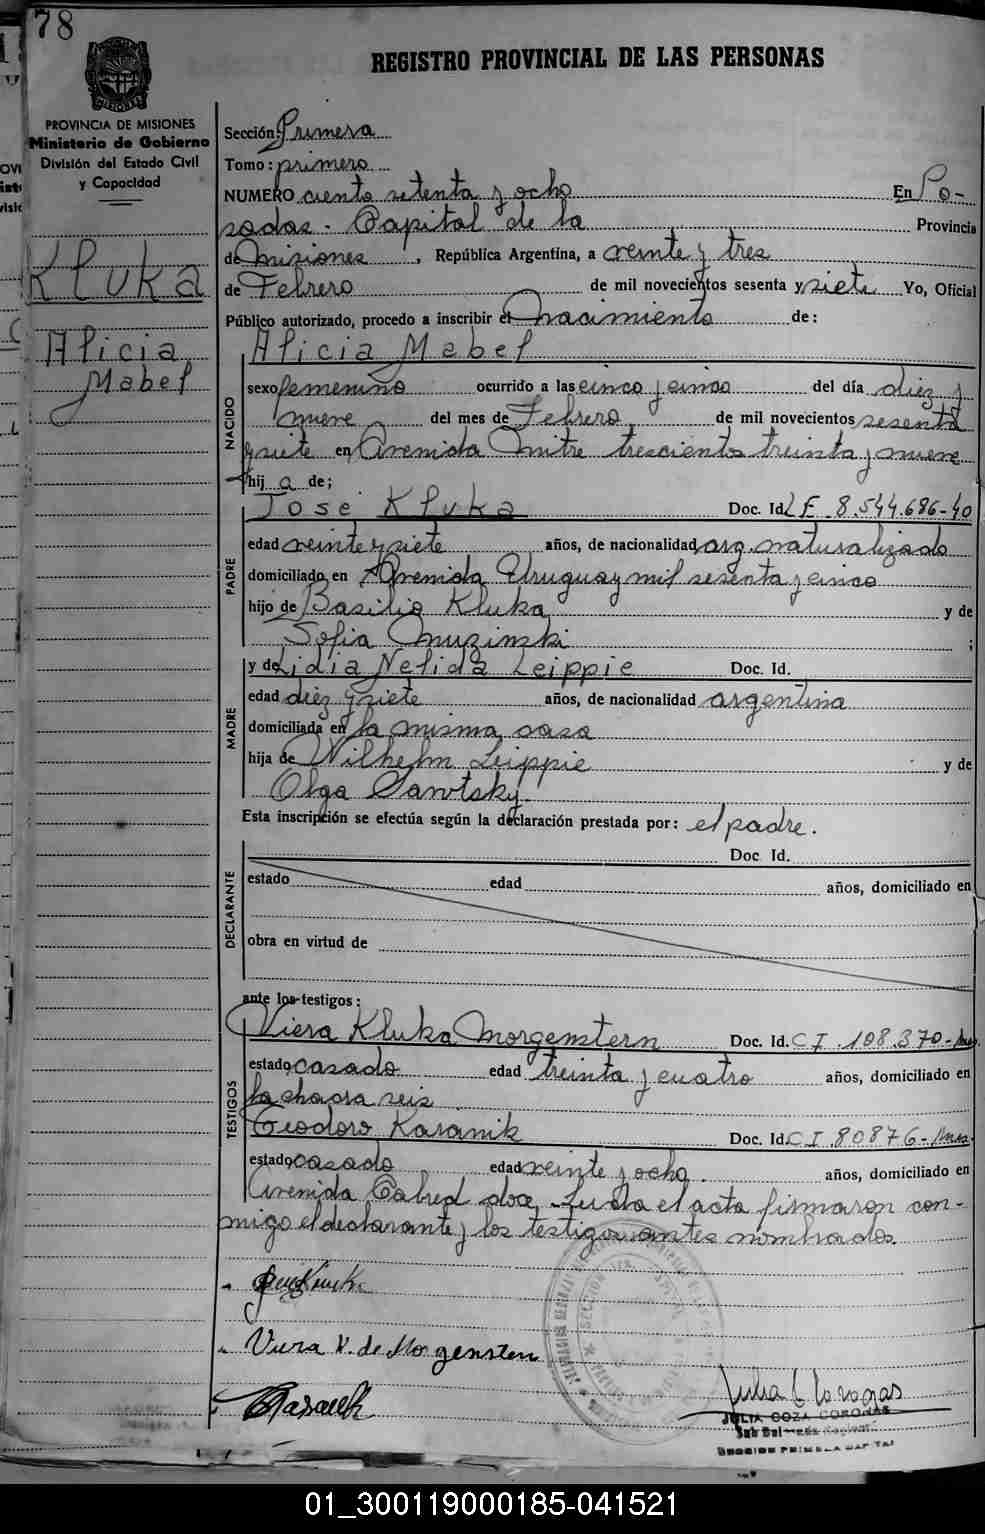 78
REGISTRO PROVINCIAL DE LAS PERSONAS
PROVINCIA DE MISIONES
Ministerio de Gobierno
División del Estado Civil
y Capacidad
Kluka
Alicia
Mabel
Sección: Primera
Tomo: primero
NUMERO ciento setenta y ocho En Po-
sadas - Capital de la Provincia
de Misiones, República Argentina, a veinte y tres
de Febrero de mil novecientos sesenta y siete Yo, Oficial
Público autorizado, procedo a inscribir el nacimiento de:
Alicia Mabel
NACIDO
sexo femenino ocurrido a las cinco y cinco del día diez y
nueve del mes de Febrero de mil novecientos sesenta
y siete en Avenida Mitre trescientos treinta y nueve
hij a de;
José Kluka Doc. Id. L E 8.544.686-40
PADRE
edad veinte y siete años, de nacionalidad arg. naturalizado
domiciliado en Avenida Uruguay mil sesenta y cinco
hijo de Basilio Kluka y de
Sofia Muzinski ;
y de Lidia Nelida Leippie Doc. Id.
MADRE
edad diez y siete años, de nacionalidad argentina
domiciliada en la misma casa
hija de Wilhelm Leippie y de
Olga Sawtsky.
Esta inscripción se efectúa según la declaración prestada por: el padre.
Doc. Id.
DECLARANTE
estado edad años, domiciliado en
obra en virtud de
ante los testigos:
Viera Kluka Morgenstern Doc. Id. C I .108.370-Mns.
TESTIGOS
estado casado edad treinta y cuatro años, domiciliado en
la chacra seis
Teodoro Karanik Doc. Id. C I 80876-Mns.
estado casado edad veinte y ocho. años, domiciliado en
Avenida Cabred doce. Leida el acta firmaron con-
migo el declarante y los testigos antes nombrados.
Viera K. de Morgenstern
JULIA COZA CORONAS
SECCION PRIMERA CAPITAL
01_300119000185-041521